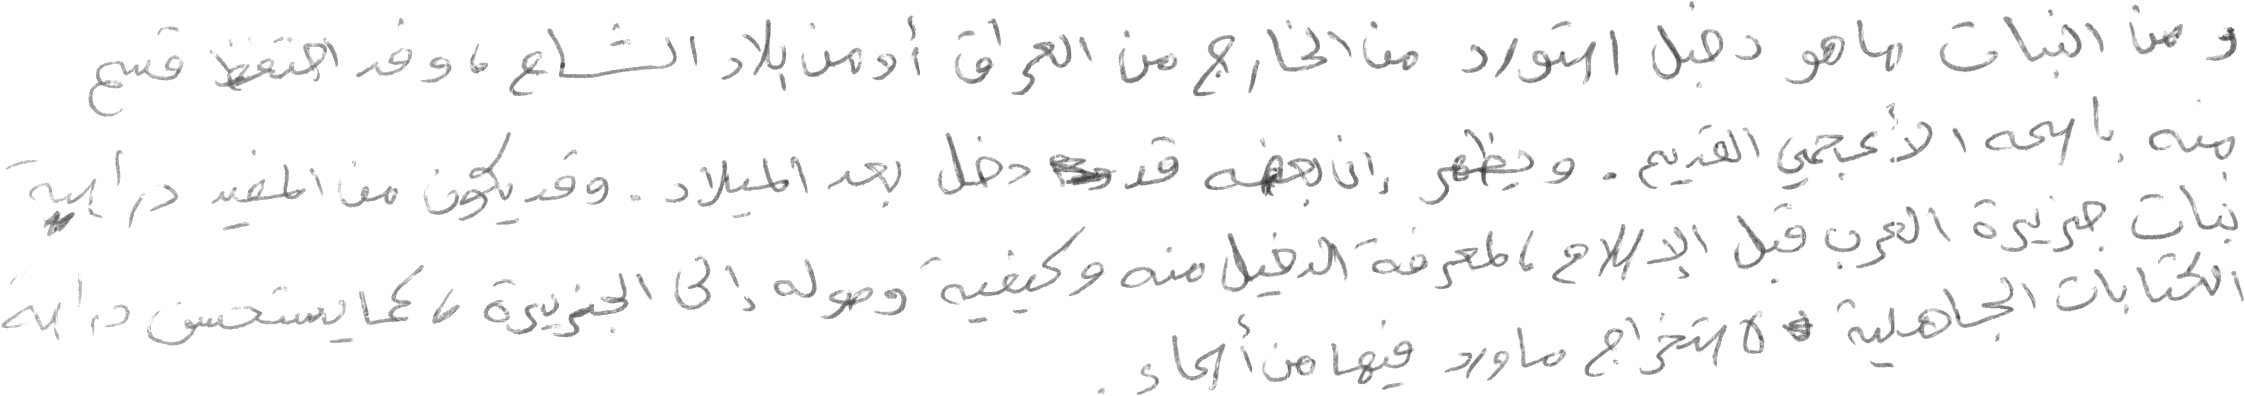 ومن النبات ما هو دخيل استورد من الخارج من العراق أو من بلاد الشام، وقد احتفظ قسم
منه باسمه الأعجمي القديم. ويظهر إن بعضه قد دخل بعد الميلاد. وقد يكون من المفيد دراسة
نبات جزيرة العرب قبل الإسلام، لمعرفة الدخيل منه وكيفية وصوله إلى الجزيرة، كما يستحسن دراسة
الكتابات الجاهلية لاستخراج ما ورد فيها من أسماء.